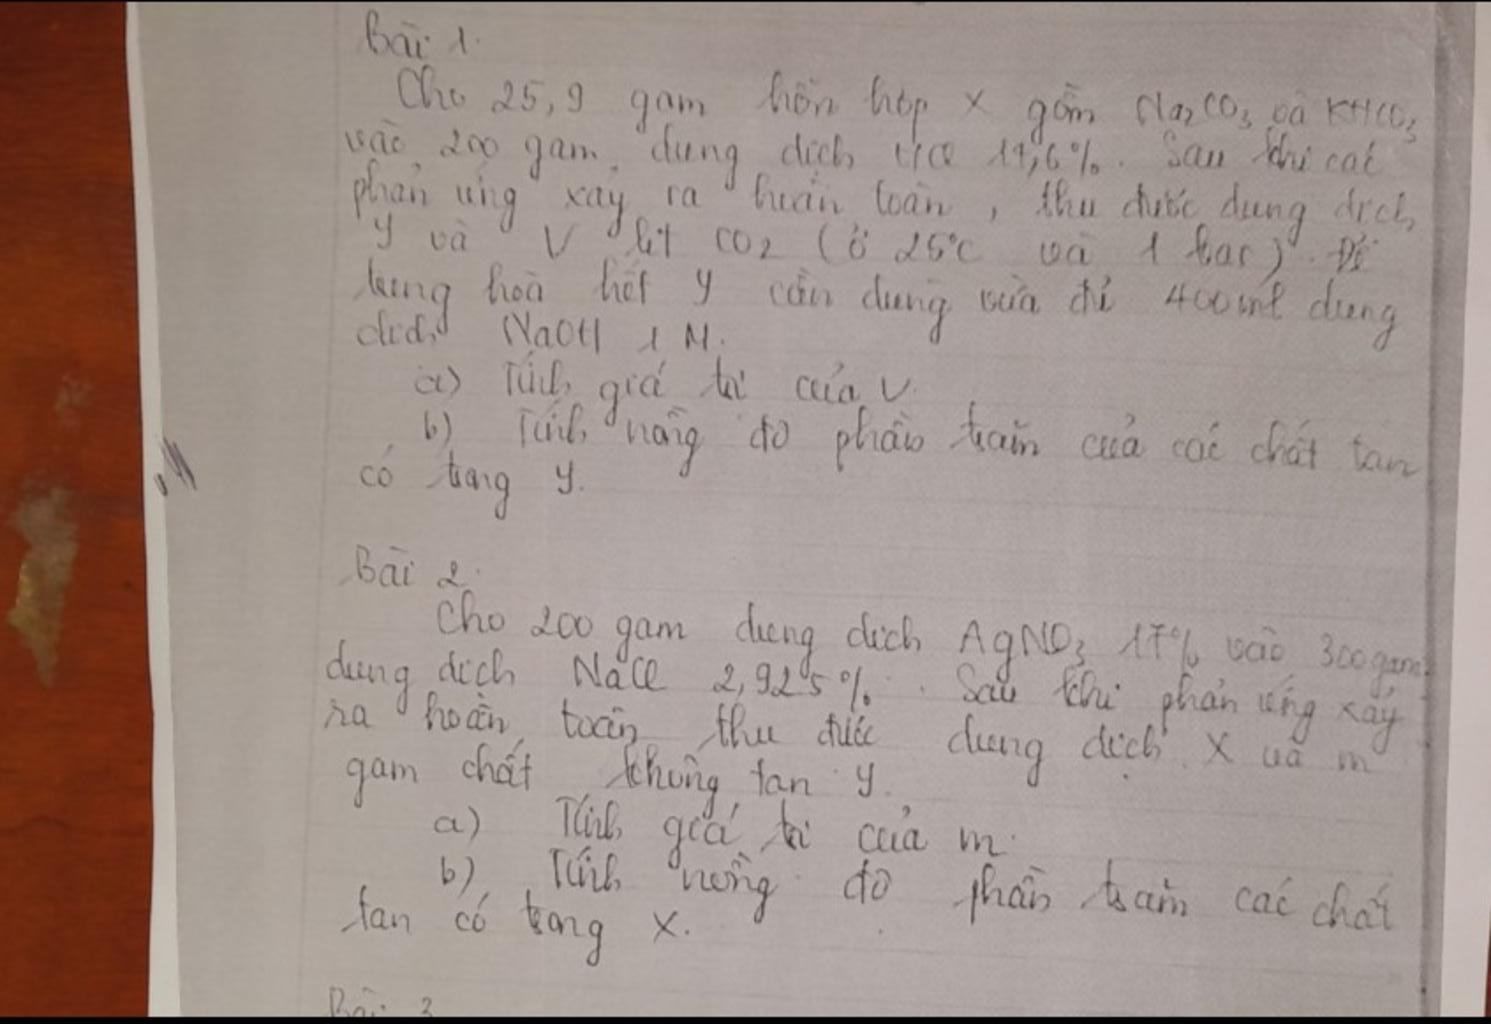 Bài 1.
Cho 25,9 gam hỗn hợp X gồm Na2CO3 và KHCO3
vào 200 gam dung dịch HCl 14,6%. Sau khi các
phản ứng xảy ra hoàn toàn, thu được dung dịch
Y và V lít CO2 (ở 25°C và 1 bar). Để
trung hoà hết Y cần dung vừa đủ 400 ml dung
dịch NaOH 1 M.
a) Tính giá trị của V.
b) Tính nồng độ phần trăm của các chất tan
có trong Y.
Bài 2.
Cho 200 gam dung dịch AgNO3 17% vào 300 gam
dung dịch NaCl 2,925%. Sau khi phản ứng xảy
ra hoàn toàn thu được dung dịch X và m
gam chất không tan Y.
a) Tính giá trị của m.
b) Tính nồng độ phần trăm các chất
tan có trong X.
Bài 3